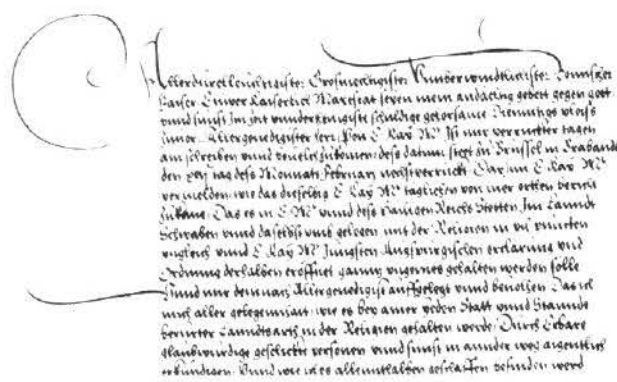 Allerdurchleuchtigister Grosmechtigister Vnüberwindtlichister Römischer
Kaiser Euwer Kaiserlich Maiestat seyen mein andachtig gebett gegen gott
vnnd sunst Im zeit vnderthenigiste schuldige gehorsame dienst
zuuor. Allergenedigister herr, Von E. Kay. Mt. Ist mir verruckter tagen
ain schreiben vnnd beuelch zukomen, dess datum steet zu Brüssel in Brabandt
den tag dess Monnats Februarij nechstverruckt. Darinn E. Kay. Mt.
vermelden, wie das dieselbig E. Kay. Mt. taglichen von mer orthen bericht
zukome. Das es in E. Mt. vnnd dess hailigen Reichs Stetten Im Lanndt
Schwaben vnnd daselbst vmb gelegen mit der Religion in vil puncten
vngleich vnnd E. Kay. Mt. Jungsten Augspurgischen erclarung vnd
Ordnung derhalben eröffnet ganntz vngemes gehalten werden solle
Vnnd mir demnach Allergenedigist auffgelegt vnnd beuolhen. Das ich
mich aller gelegenhait, wie es bey ainer yeden Statt vnnd Stannde
berürter Lanndtsarth in der Religion gehalten werde. Durch Erbare
glaubwürdige geschickte personen vnnd sunst in annder weg aigentlich
erkündigen. Vnnd wie ich es allenthalben geschaffen befinden werd